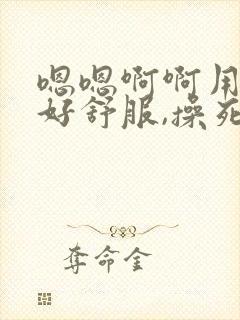 嗯嗯啊啊用
好舒服,操死
夺命金